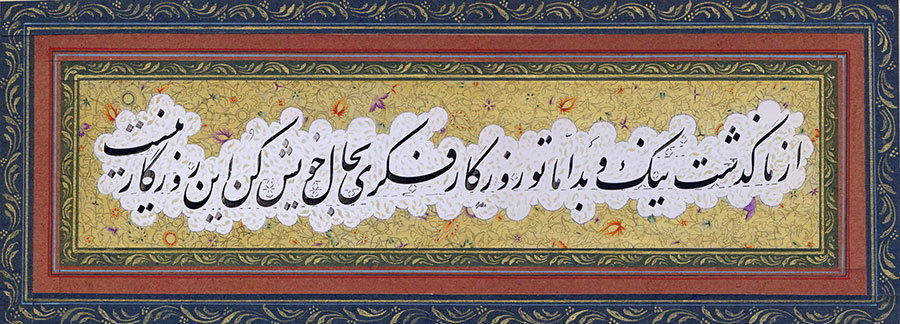 از ما گذشت نیک و بد اما تو روزگار فکری بحال خویش کن این روزگار نیست